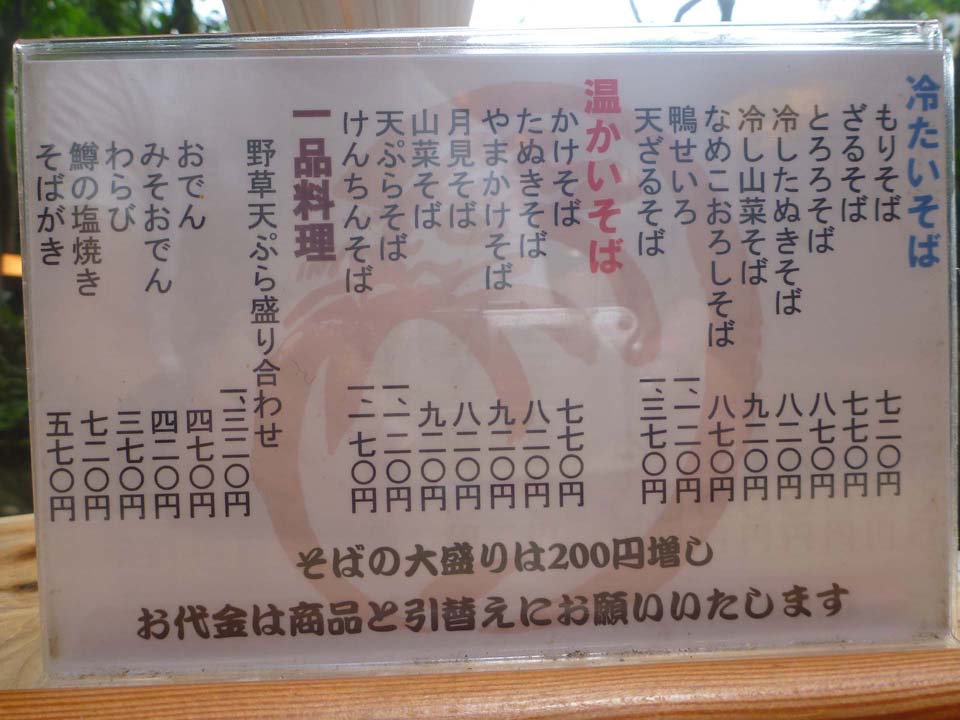 冷たいそば
もりそば 七二〇円
ざるそば 七七〇円
とろろそば 八七〇円
冷したぬきそば 八二〇円
冷し山菜そば 九二〇円
なめこおろしそば 八七〇円
鴨せいろ 一、二二〇円
天ざるそば 一、三七〇円
温かいそば
かけそば 七七〇円
たぬきそば 八二〇円
やまかけそば 九二〇円
月見そば 八二〇円
山菜そば 九二〇円
天ぷらそば 一、二二〇円
けんちんそば 一、二七〇円
一品料理
野草天ぷら盛り合わせ 一、三二〇円
おでん 四七〇円
みそおでん 四二〇円
わらび 三七〇円
鱒の塩焼き 七二〇円
そばがき 五七〇円
そばの大盛りは200円増し
お代金は商品と引替えにお願いいたします